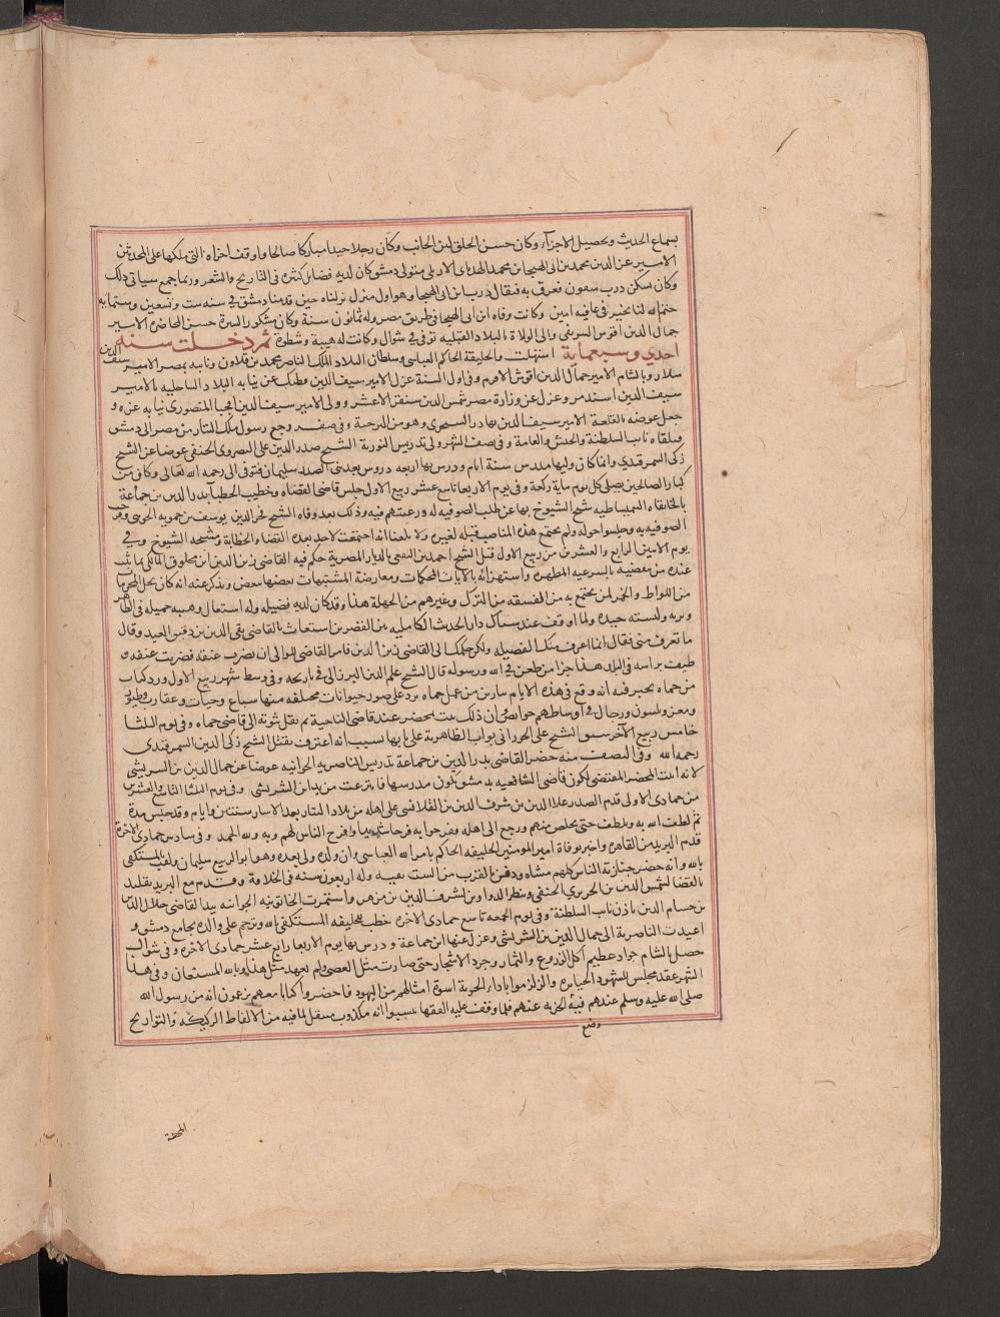 بسماع الحديث وتحصيل الاجزآء وكان حسن الخلق لين الجانب وكان رجلا جيدا مباركا صالحا واوقف اجزاه التي ملكها على المحدثين
الامير عز الدين محمد بن ابي الهيجا بن محمد الهدباى الاربلي متولي دمشق كان لديه فضايل كثيره في التاريخ والشعر وربما جمع سيا في ذلك
وكان يسكن درب سعور فعرف به فيقال درب ابن ابي الهيجا وهو اول منزل نزلناه حين قدمنا دمشق في سنه ست وتسعين وستمايه
ختم الله لنا بخير في عافيه امين وكانت وفاه ابن ابي الهيجا في طريق مصر وله ثمانون سنة وكان مشكور السيرة حسن المحاضره الامير
جمال الدين اقوس الشريفي والى الولاة بالبلاد القبليه توفي في شوال وكانت له هيبة وسطوة ثم دخلت سنه
احدي وسبعماية استهلت والخليفة الحاكم العباسي وسلطان البلاد الملك الناصر محمد بن قلاون ونايبه بمصر الامير سيف الدين
سلار وبالشام الامير جمال الدين اقوش الافرم وفي اول السنة عزل الامير سيف الدين قطلبك عن نيابه البلاد الساحليه بالامير
سيف الدين اسندمر وعزل عن وزارة مصر شمس الدين سنقر الاعسر وولى الامير سيف الدين المنصوري نيابه غزه و
جعل عوضه بالقلعة الامير سيف الدين بهادر السنجري وهو من الرحبة وفي صفر رجع رسول ملك التتار من مصر الى دمشق
فتلقاه نايب السلطنة والجيش والعامة وفي نصف الشهر ولى تدريس النورية الشيخ صدر الدين علي البصروي الحنفي عوضا عن الشيخ
زكي السمرقندي وانما كان وليها مدرس سنة ايام ودرس بها اربعه دروس بعد بني الصدر سليمان فتوفى الى رحمه الله تعالى وكان من
كبار الصالحين يصلي كل يوم ماية ركعة وفي يوم الاربعا تاسع عشر ربيع الاول جلس قاضي القضاه وخطيب الخطبا بدر الدين بن جماعة
بالخانقاه السميساطيه شيخ الشيوخ بها عن طلب الصوفيه له ورغبتهم فيه وذلك بعد وفاه الشيخ فخر الدين يوسف بن حمويه الجويني
الصوفيه به وجلسوا حوله ولم تجتمع هذه المناصب قبله لغيره ولا بلغنا انها اجتمعت لاحد بعده القضاء والخطابة ومشيخه الشيوخ وفي
يوم الاثنين الرابع والعشرين من ربيع الاول قتل الشيخ احمد بن الثقفي بالديار المصرية حكم فيه القاضي زين الدين ابن مخلوف المالكي بما ثبت
عنده من تنقيصه بالشرعيه المطهره واستهزائه بالايات المحكمات ومعارضة المشتبهات بعضها ببعض ويذكر عنه انه كان يحل المحرمات
من اللواط والخمر لمن يجتمع به من الفسقه من الترك وغيرهم من الجهلة هذا وقد كان لديه فضيله وله اشتغال وهيبه جميله في الظاهر
وبزته ولبسته جيده ولما اوقف عند شباك دار الحديث الكامليه بين القصرين استغاث بالقاضي تقي الدين بن دقيق العيد وقال
ما تعرف مني فقال انما اعرف منك الفضيله ولكن حكمك الى القاضي زين الدين فامر القاضي للوالي ان تضرب عنقه فضربت عنقه و
طيف براسه في البلد هذا جزا من طعن في الله ورسوله قال الشيخ علم الدين البرزالي في تاريخه وفي وسط شهر ربيع الاول ورد كتاب
من حماه يخبر فيه انه وقع في هذه الايام ببارين من عمل حماه برد على صور حيوانات مختلفه منها سباع وحيات وعقارب وطيور
ومعز ونسون ورجال في اوساطهم حوايص وان ذلك ثبت بمحضر عند قاضي الناحية ثم نقل ثبوته الى قاضي حماه وفي يوم الثلثا
خامس ربيع الاخر شنق الشيخ علي الحوراني بواب الظاهرية على بابها بسبب انه اعترف بقتل الشيخ زكي الدين السمرقندي
رحمه الله وفي النصف منه حضر القاضي بدر الدين بن جماعة تدريس الناصريه الجوانيه عوضا عن جمال الدين بن الشريشي
لانه اثبت المحضر المقتضي لكون قاضي الشافعيه بدمشق يكون مدرسها فانتزعت من يد ابن الشريشي وفي يوم الثلثا التاسع والعشرين
من جمادى الاولى قدم الصدر علا الدين بن شرف الدين بن القلانسي على اهله من بلاد التتار بعد الاسار سنتين وايام وقد حبس مدة
ثم لطف الله به وتلطف حتى تخلص منهم ورجع الى اهله ففرحوا به فرحا شديدا وافرح الناس لهم وبه ولله الحمد وفي سادس جمادى الاخرة
قدم البريد من القاهره واخبر بوفاة امير المومنين الخليفه الحاكم بامر الله العباسي وان ولده ولي بعده وهو ابو الربيع سليمان ولقب بالمستكفي
بالله وانه حضر جنازته الناس كلهم مشاه ودفن بالقرب من الست نفيسه وله اربعون سنه في الخلافة وقدم مع البريد تقليد
بالقضا لشمس الدين بن الحريري الحنفي ونظر الدواوين لشرف الدين بن مزهر واستمرت الخاتونيه الجوانيه بيد القاضي جلال الدين
بن حسام الدين باذن نايب السلطنة وفي يوم الجمعه تاسع جمادى الاخره خطب للخليفه المستكفي بالله وترحم على والده بجامع دمشق و
اعيدت الناصرية الى جمال الدين بن الشريشي وعزل عنها ابن جماعة ودرس بها يوم الاربعا رابع عشر جمادى الاخره وفي شوال
حصل بالشام جراد عظيم اكل الزروع والثمار وجرد الاشجار حتى صارت مثل العصي ولم يعهد مثل هذا وبالله المستعان وفي هذا
الشهر عقد مجلس لليهود الخيابره والزلزموا باداء الجزية اسوة امثالهم من اليهود فاحضروا كتابا معهم يزعمون انه من رسول الله
صلى الله عليه وسلم عندهم فيه الجزيه عنهم فلما وقف عليه الفقها تبينوا انه مكذوب مفتعل لما فيه من الالفاظ الركيكه والتواريخ